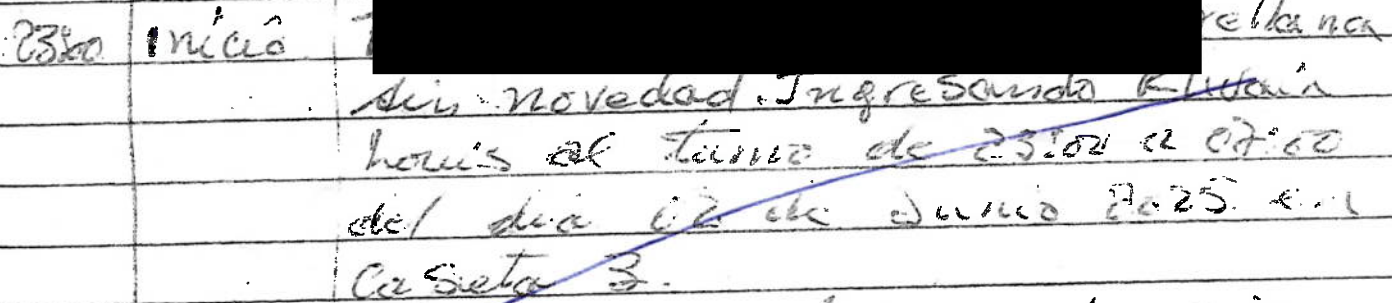 23:00 Inició rellana
sin novedad. Ingresando
houis al turno de 23:00 a 07:00
del dia 02 de Junio 2025 en
Caseta 3.